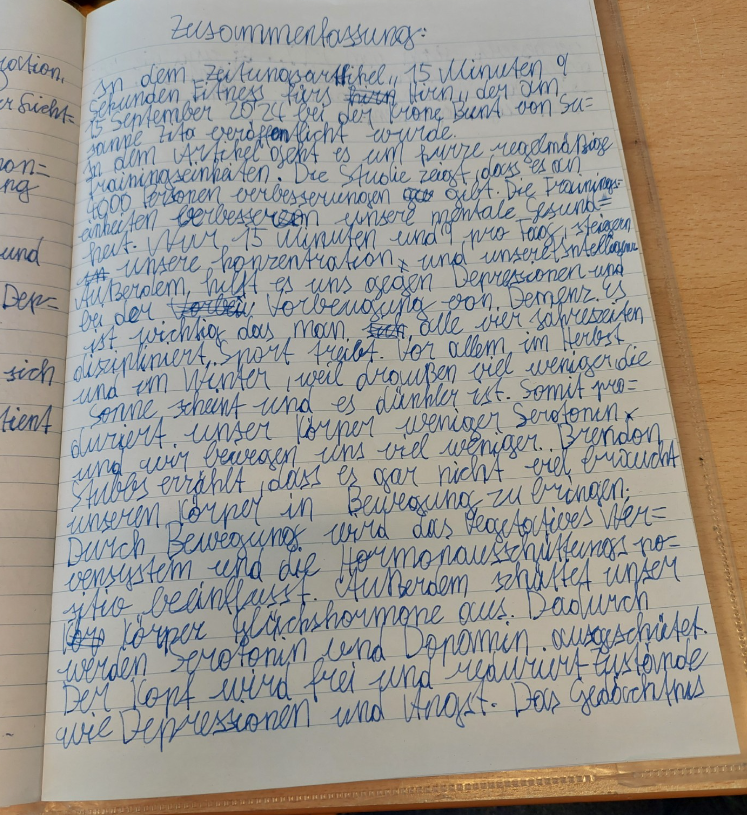 Zusammenfassung:
In dem Zeitungsartikel „15 Minuten 9
Sekunden Fitness fürs Hirn„ der am
15 September 2024 bei der Krone Bunt von Su=
sanne Zita veröffentlicht wurde.
In dem Artikel geht es um kurze regelmäßige
Trainingseinheiten. Die Studie zeigt, dass es an
4000 Personen verbesserungen gibt. Die Trainings=
einheiten verbessern unsere mentale Gesund=
heit. Nur, 15 Minuten und 9 pro Tag, steigern
unsere konzentration, und unsere Intelligenz
Außerdem, hilft es uns gegen Depressionen und
bei der Vorbeugung von Demenz. Es
ist wichtig das man alle vier Jahreszeiten
diszipliniert Sport treibt. Vor allem im Herbst
und im Winter, weil draußen viel weniger die
Sonne scheint und es dünkler ist. Somit pro=
duziert unser Körper weniger Serotonin
und wir bewegen uns viel weniger. Brendon
Stubbs erzählt, dass es gar nicht viel braucht
unseren Körper in Bewegung zu bringen.
Durch Bewegung wird das Vegetatives Ner=
vensystem und die Hormonausschüttungs po=
sitiv beeinflusst. Außerdem schüttet unser
Körper Glückshormone aus. Dadurch
werden Serotonin und Dopamin ausgeschütet.
Der Kopf wird frei und reduziert Zustände
wie Depressionen und Angst. Das Gedächtnis
ration,
er Sicht=
on=
ng
und
Dep=
sich
tient